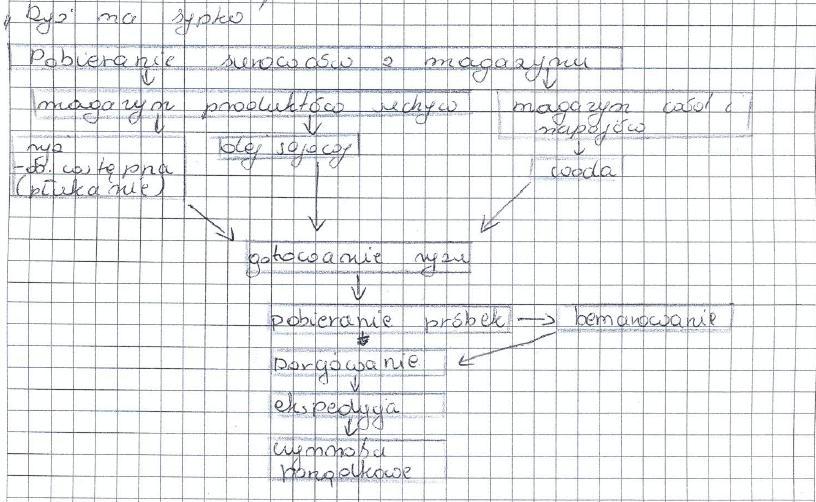 Ryż na sypko
Pobieranie surowców z magazynu
magazyn produktów suchych
magazyn wód i
napojów
ryż
-ob. wstępna
(płukanie)
olej sojowy
woda
gotowanie ryżu
pobieranie próbek
bemarowanie
porcjowanie
ekspedycja
czynności
porządkowe